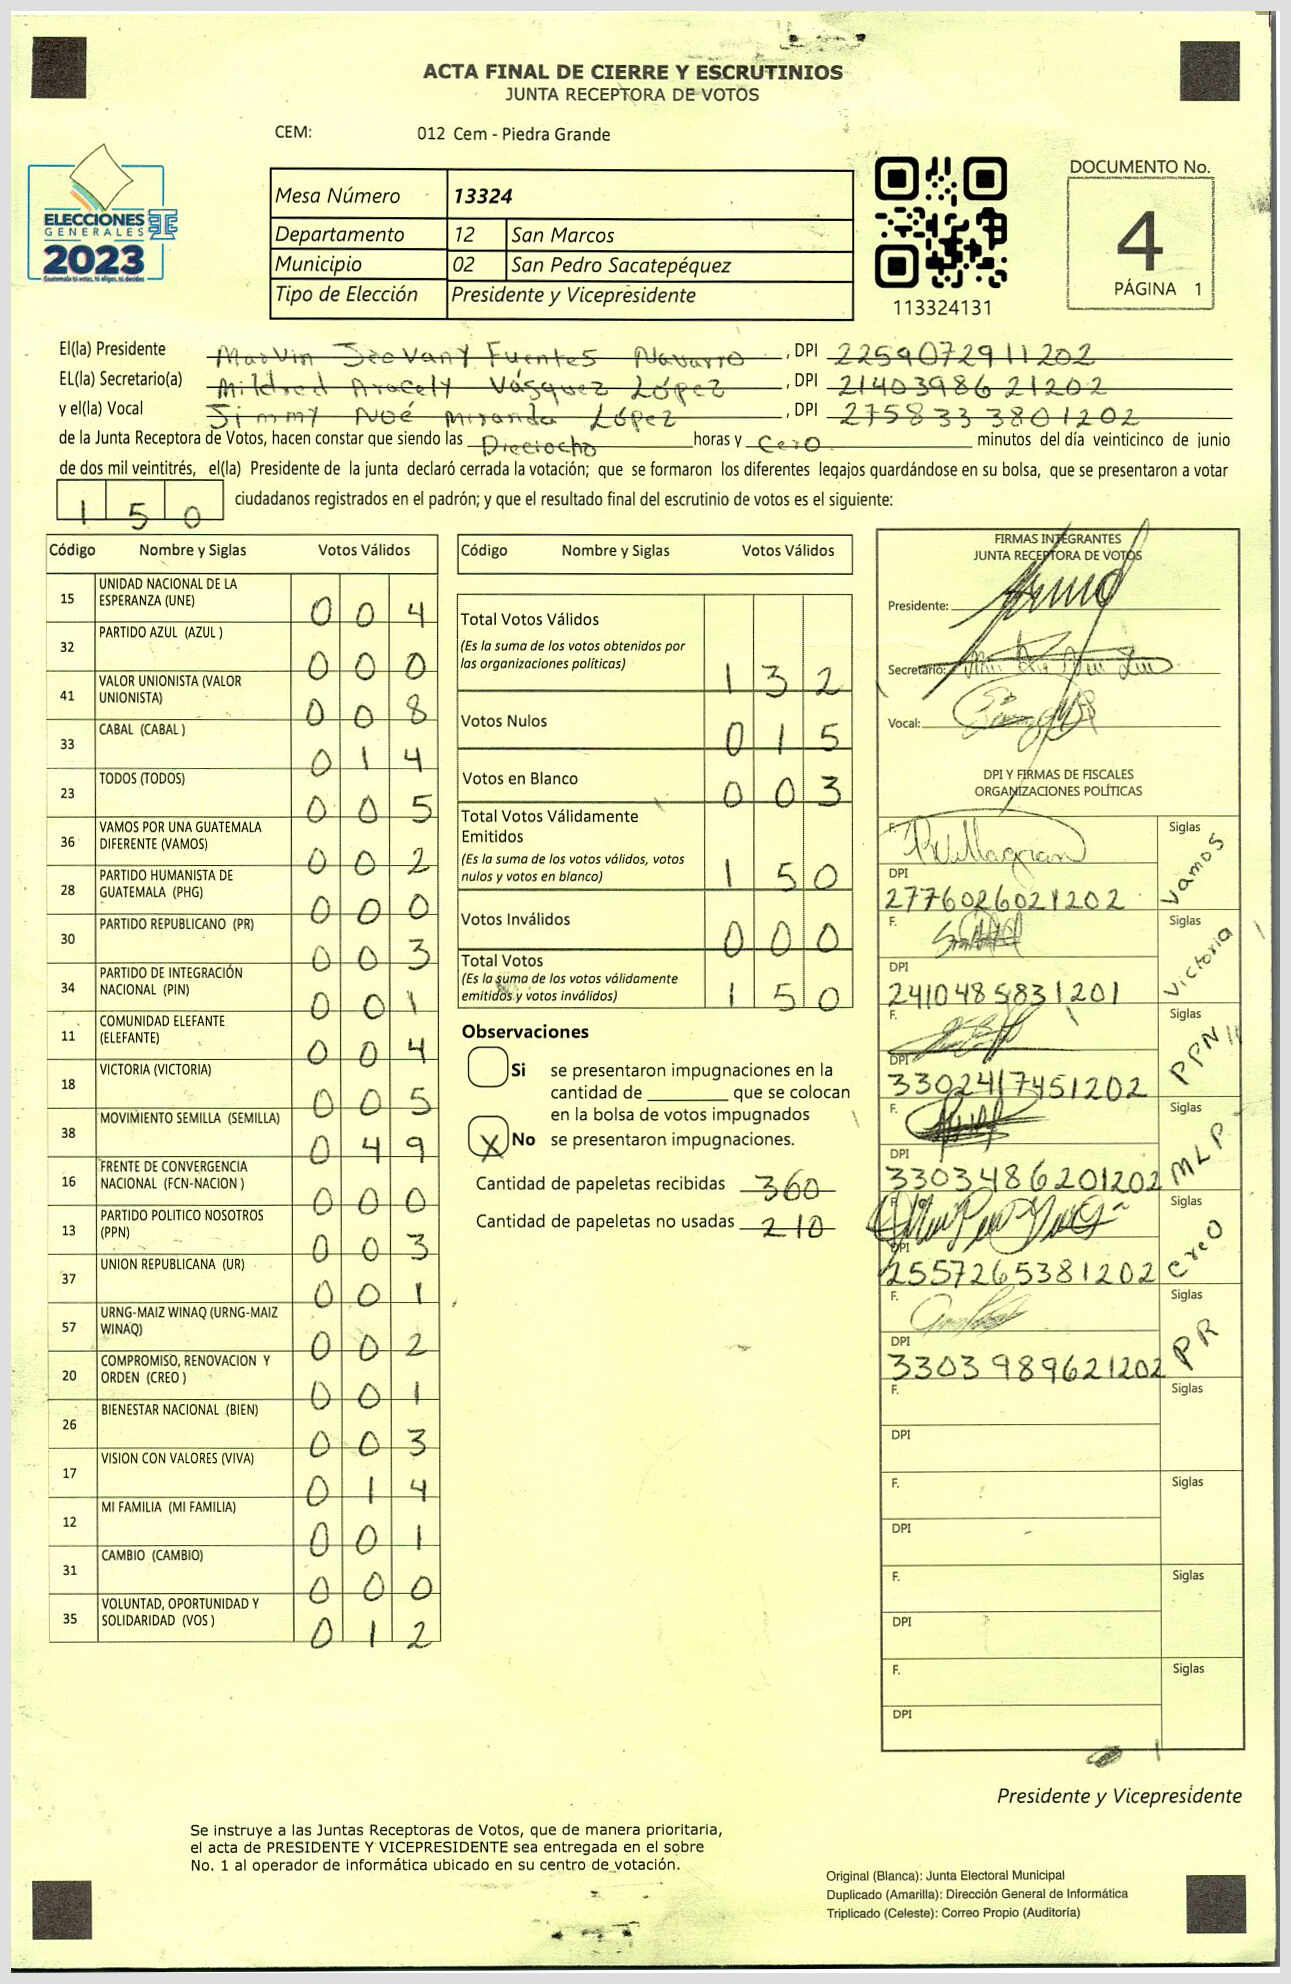 ACTA FINAL DE CIERRE Y ESCRUTINIOS
JUNTA RECEPTORA DE VOTOS
CEM: 012 Cem - Piedra Grande
ELECCIONES
GENERALES
2023
Guatemala tú votas, tú eliges, tú decides
Mesa Número 13324
Departamento 12 San Marcos
Municipio 02 San Pedro Sacatepéquez
Tipo de Elección Presidente y Vicepresidente
113324131
DOCUMENTO No.
4
PÁGINA 1
El(la) Presidente Marvin Jeovany Fuentes Navarro, DPI 2259072911202
EL(la) Secretario(a) Mildred Aracely Vásquez López, DPI 2140398621202
y el(la) Vocal Jimmy Noé Miranda López, DPI 2758333801202
de la Junta Receptora de Votos, hacen constar que siendo las Dieciocho horas y cero minutos del día veinticinco de junio
de dos mil veintitrés, el(la) Presidente de la junta declaró cerrada la votación; que se formaron los diferentes legajos guardándose en su bolsa, que se presentaron a votar
150 ciudadanos registrados en el padrón; y que el resultado final del escrutinio de votos es el siguiente:
Código Nombre y Siglas Votos Válidos
15 UNIDAD NACIONAL DE LA ESPERANZA (UNE) 004
32 PARTIDO AZUL (AZUL ) 000
41 VALOR UNIONISTA (VALOR UNIONISTA) 008
33 CABAL (CABAL ) 014
23 TODOS (TODOS) 005
36 VAMOS POR UNA GUATEMALA DIFERENTE (VAMOS) 002
28 PARTIDO HUMANISTA DE GUATEMALA (PHG) 000
30 PARTIDO REPUBLICANO (PR) 003
34 PARTIDO DE INTEGRACIÓN NACIONAL (PIN) 001
11 COMUNIDAD ELEFANTE (ELEFANTE) 004
18 VICTORIA (VICTORIA) 005
38 MOVIMIENTO SEMILLA (SEMILLA) 049
16 FRENTE DE CONVERGENCIA NACIONAL (FCN-NACION ) 000
13 PARTIDO POLITICO NOSOTROS (PPN) 003
37 UNION REPUBLICANA (UR) 001
57 URNG-MAIZ WINAQ (URNG-MAIZ WINAQ) 002
20 COMPROMISO, RENOVACION Y ORDEN (CREO ) 001
26 BIENESTAR NACIONAL (BIEN) 003
17 VISION CON VALORES (VIVA) 014
12 MI FAMILIA (MI FAMILIA) 001
31 CAMBIO (CAMBIO) 000
35 VOLUNTAD, OPORTUNIDAD Y SOLIDARIDAD (VOS ) 012
Código Nombre y Siglas Votos Válidos
Total Votos Válidos
(Es la suma de los votos obtenidos por
las organizaciones políticas) 132
Votos Nulos 015
Votos en Blanco 003
Total Votos Válidamente
Emitidos
(Es la suma de los votos válidos, votos
nulos y votos en blanco) 150
Votos Inválidos 000
Total Votos
(Es la suma de los votos válidamente
emitidos y votos inválidos) 150
Observaciones
Si se presentaron impugnaciones en la
cantidad de ________ que se colocan
en la bolsa de votos impugnados
X No se presentaron impugnaciones.
Cantidad de papeletas recibidas 360
Cantidad de papeletas no usadas 210
FIRMAS INTEGRANTES
JUNTA RECEPTORA DE VOTOS
Presidente:
Secretario:
Vocal:
DPI Y FIRMAS DE FISCALES
ORGANIZACIONES POLÍTICAS
F. Siglas Vamos
DPI
2776026021202
F. Siglas Victoria
DPI
2410485831201
F. Siglas PPN
DPI
3302417451202
F. Siglas MLP
DPI
3303486201202
F. Siglas creO
DPI
2557265381202
F. Siglas PR
DPI
3303989621202
F. Siglas
DPI
F. Siglas
DPI
F. Siglas
DPI
F. Siglas
DPI
Presidente y Vicepresidente
Se instruye a las Juntas Receptoras de Votos, que de manera prioritaria,
el acta de PRESIDENTE Y VICEPRESIDENTE sea entregada en el sobre
No. 1 al operador de informática ubicado en su centro de votación.
Original (Blanca): Junta Electoral Municipal
Duplicado (Amarilla): Dirección General de Informática
Triplicado (Celeste): Correo Propio (Auditoría)